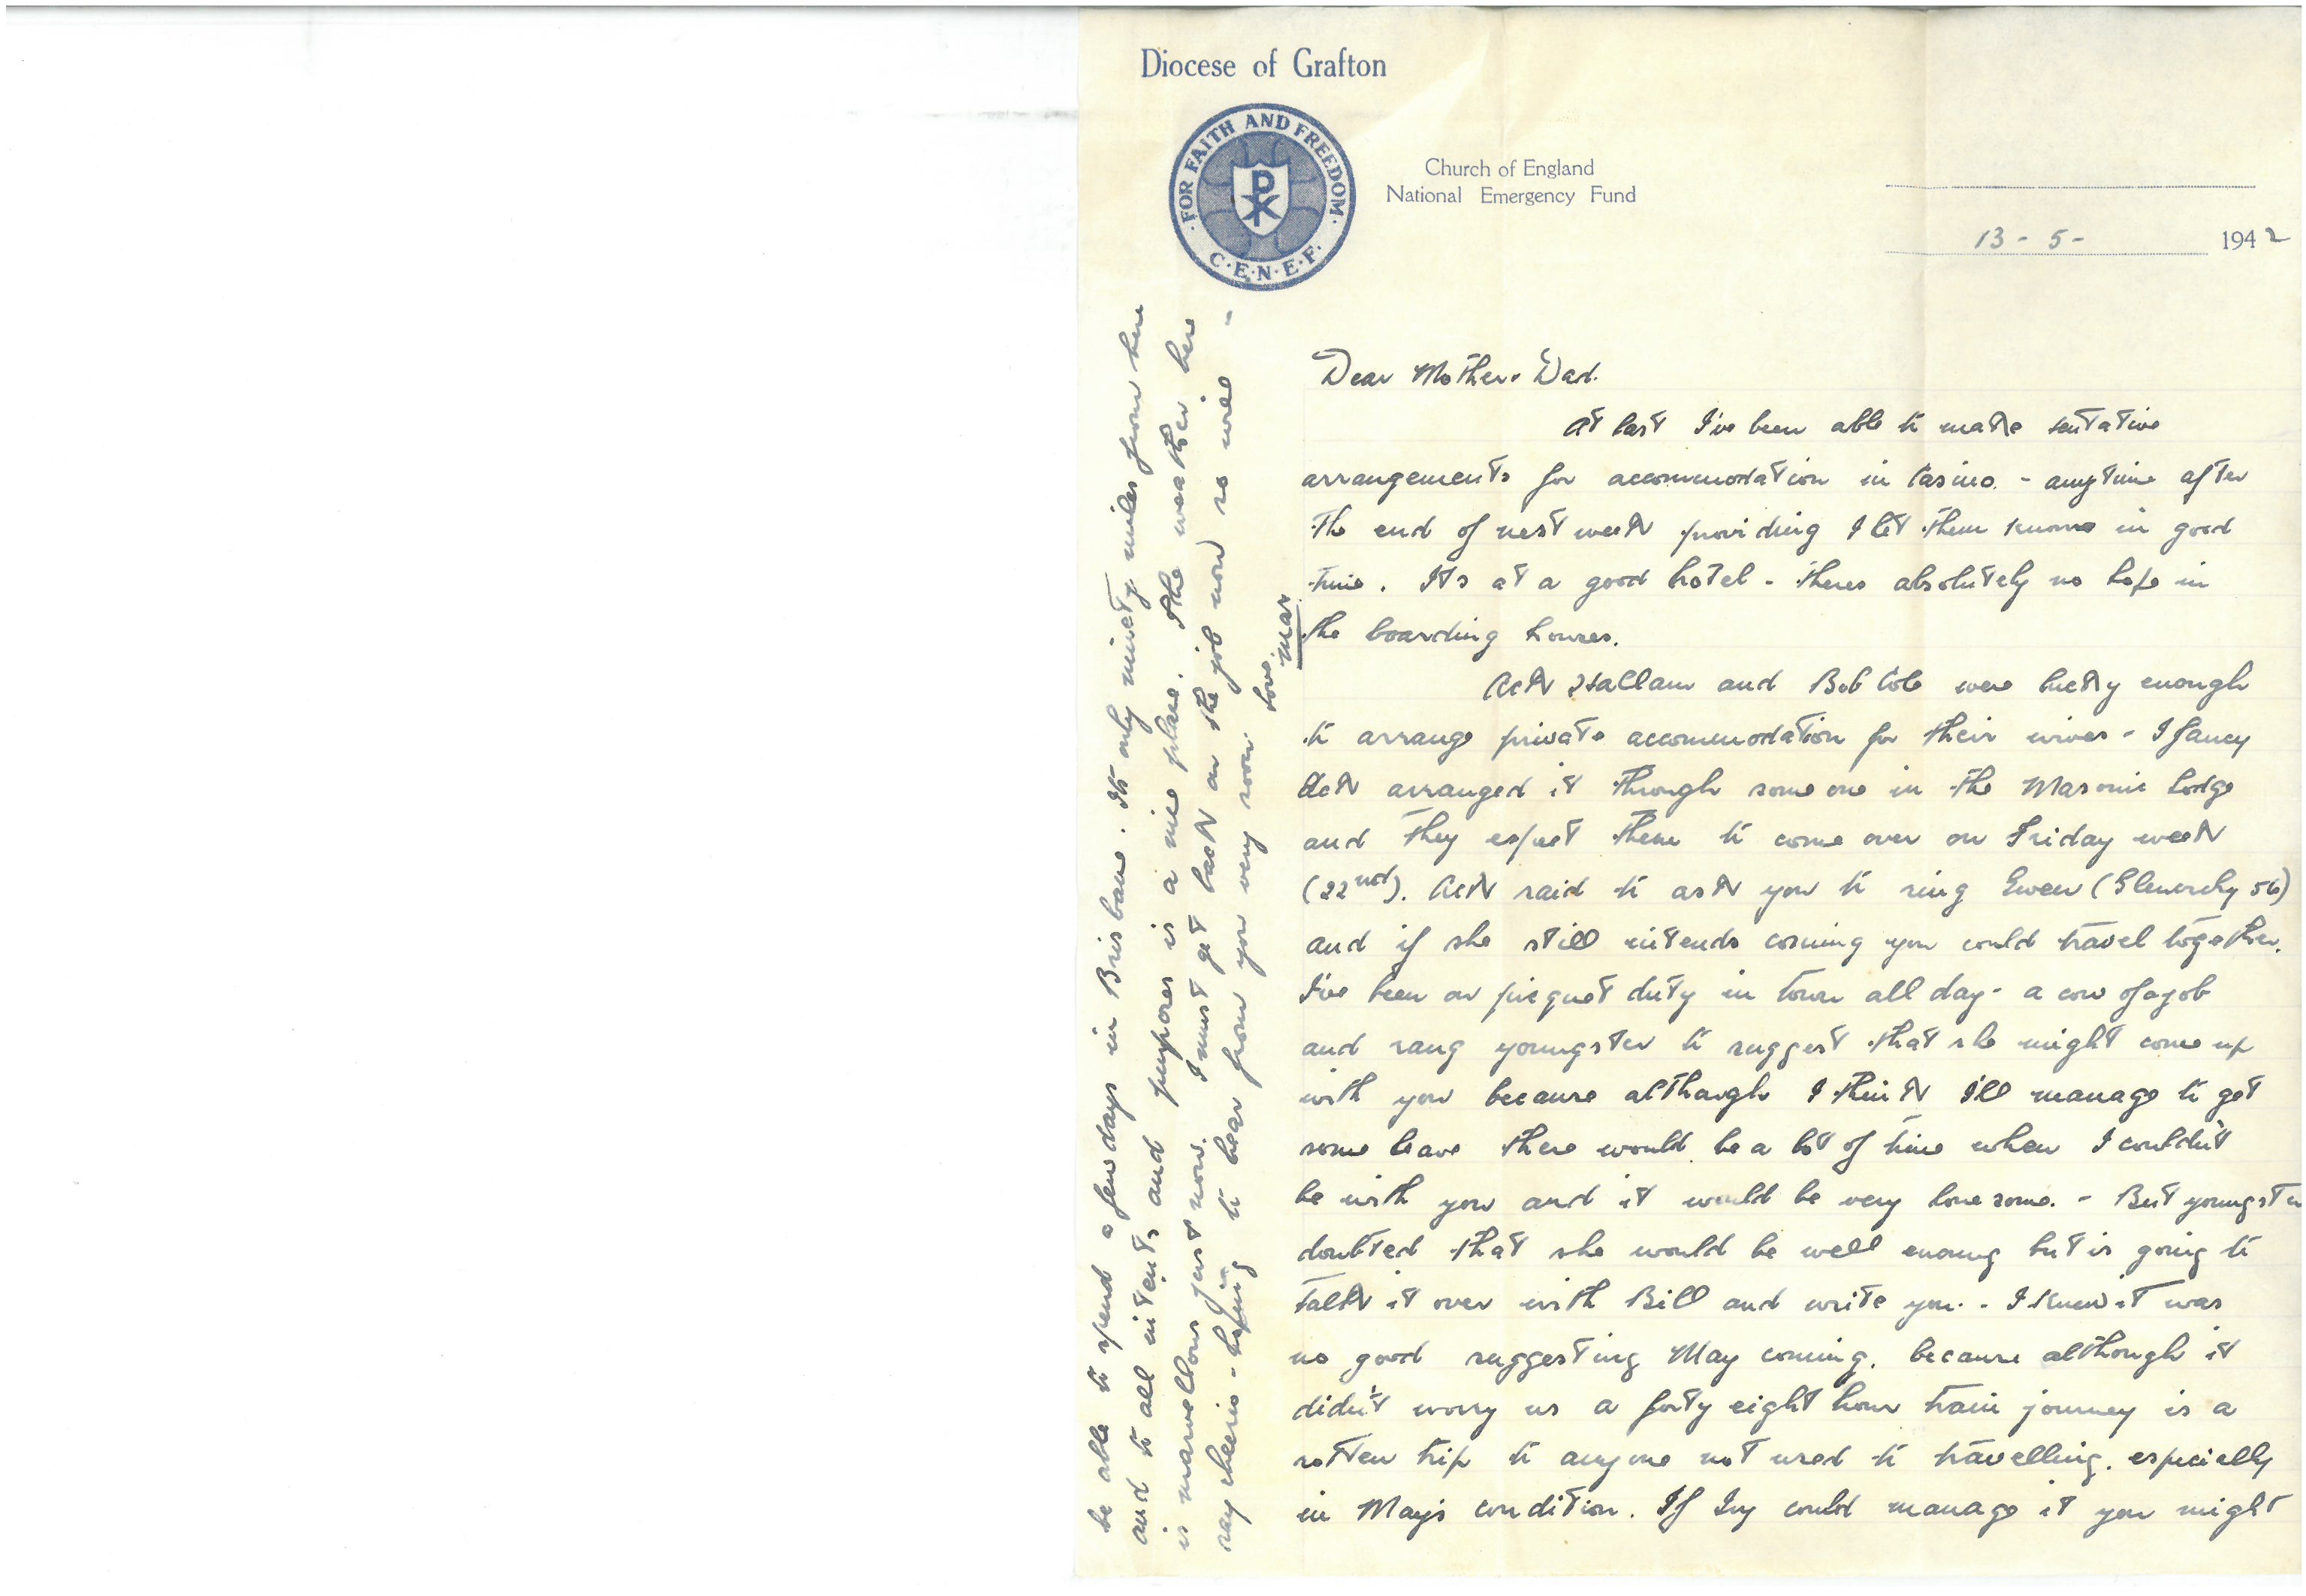 Diocese of Grafton
· FOR FAITH AND FREEDOM ·
C·E·N·E·F·
Church of England
National Emergency Fund
13 - 5 - 1942
Dear Mother & Dad.
At last I've been able to make tentative
arrangements for accommodation in Casino - anytime after
the end of next week providing I let them know in good
time. It's at a good hotel - theres absolutely no hope in
the boarding houses.
Hallam and Bob Cole were lucky enough
to arrange private accommodation for their wives - I fancy
arranged it through some one in the Masonic Lodge
and they expect them to come over on Friday week
(22nd). said to ask you to ring Gwen (Glenorchy 56)
and if she still intends coming you could travel together.
I've been on picquet duty in town all day - a cow of a job
and rang youngster to suggest that she might come up
with you because although I think I'll manage to get
some leave there would be a lot of time when I couldn't
be with you and it would be very lonesome. - But youngster
doubted that she would be well enoug but is going to
talk it over with Bill and write you. - I knew it was
no good suggesting May coming, because although it
didn't worry us a forty eight hour train journey is a
rotten trip to anyone not used to travelling, especially
in May's condition. If Ivy could manage it you might
be able to spend a few days in Brisbane. Its only ninety miles from here
and to all intents and purposes is a nice place. The weather here
is marvellous just now. I must get back on the job now so will -
say cheerio - hoping to hear from you very soon.
Love.
Max